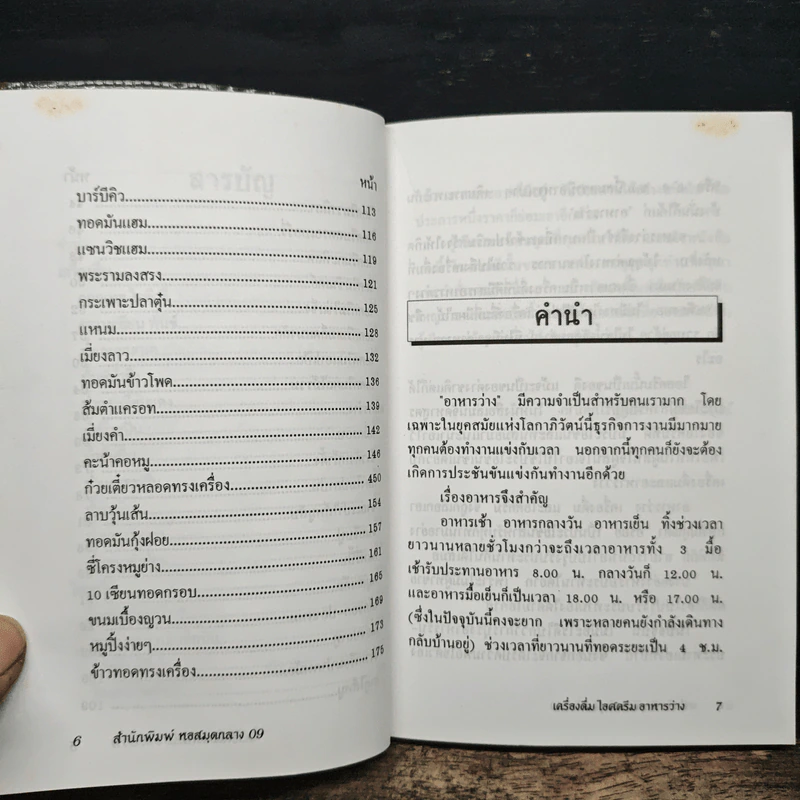 หน้า
บาร์บีคิว.................................................... 113
ทอดมันแฮม.................................................... 116
แซนวิชแฮม.................................................... 119
พระรามลงสรง.................................................... 121
กระเพาะปลาตุ๋น.................................................... 125
แหนม.................................................... 128
เมี่ยงลาว.................................................... 132
ทอดมันข้าวโพด.................................................... 136
ส้มตำแครอท.................................................... 139
เมี่ยงคำ.................................................... 142
คะน้าคอหมู.................................................... 146
ก๋วยเตี๋ยวหลอดทรงเครื่อง.................................................... 450
ลาบวุ้นเส้น.................................................... 154
ทอดมันกุ้งฝอย.................................................... 157
ซี่โครงหมูย่าง.................................................... 161
10 เซียนทอดกรอบ.................................................... 165
ขนมเบื้องญวน.................................................... 169
หมูปิ้งง่ายๆ.................................................... 173
ข้าวทอดทรงเครื่อง.................................................... 175
6 สำนักพิมพ์ หอสมุดกลาง 09
คำนำ
"อาหารว่าง" มีความจำเป็นสำหรับคนเรามาก โดย
เฉพาะในยุคสมัยแห่งโลกาภิวัตน์นี้ธุรกิจการงานมีมากมาย
ทุกคนต้องทำงานแข่งกับเวลา นอกจากนี้ทุกคนก็ยังจะต้อง
เกิดการประชันขันแข่งกันทำงานอีกด้วย
เรื่องอาหารจึงสำคัญ
อาหารเช้า อาหารกลางวัน อาหารเย็น ทิ้งช่วงเวลา
ยาวนานหลายชั่วโมงกว่าจะถึงเวลาอาหารทั้ง 3 มื้อ
เช้ารับประทานอาหาร 8.00 น. กลางวันก็ 12.00 น.
และอาหารมื้อเย็นก็เป็นเวลา 18.00 น. หรือ 17.00 น.
(ซึ่งในปัจจุบันนี้คงจะยาก เพราะหลายคนยังกำลังเดินทาง
กลับบ้านอยู่) ช่วงเวลาที่ยาวนานที่ทอดระยะเป็น 4 ช.ม.
เครื่องดื่ม ไอศครีม อาหารว่าง 7